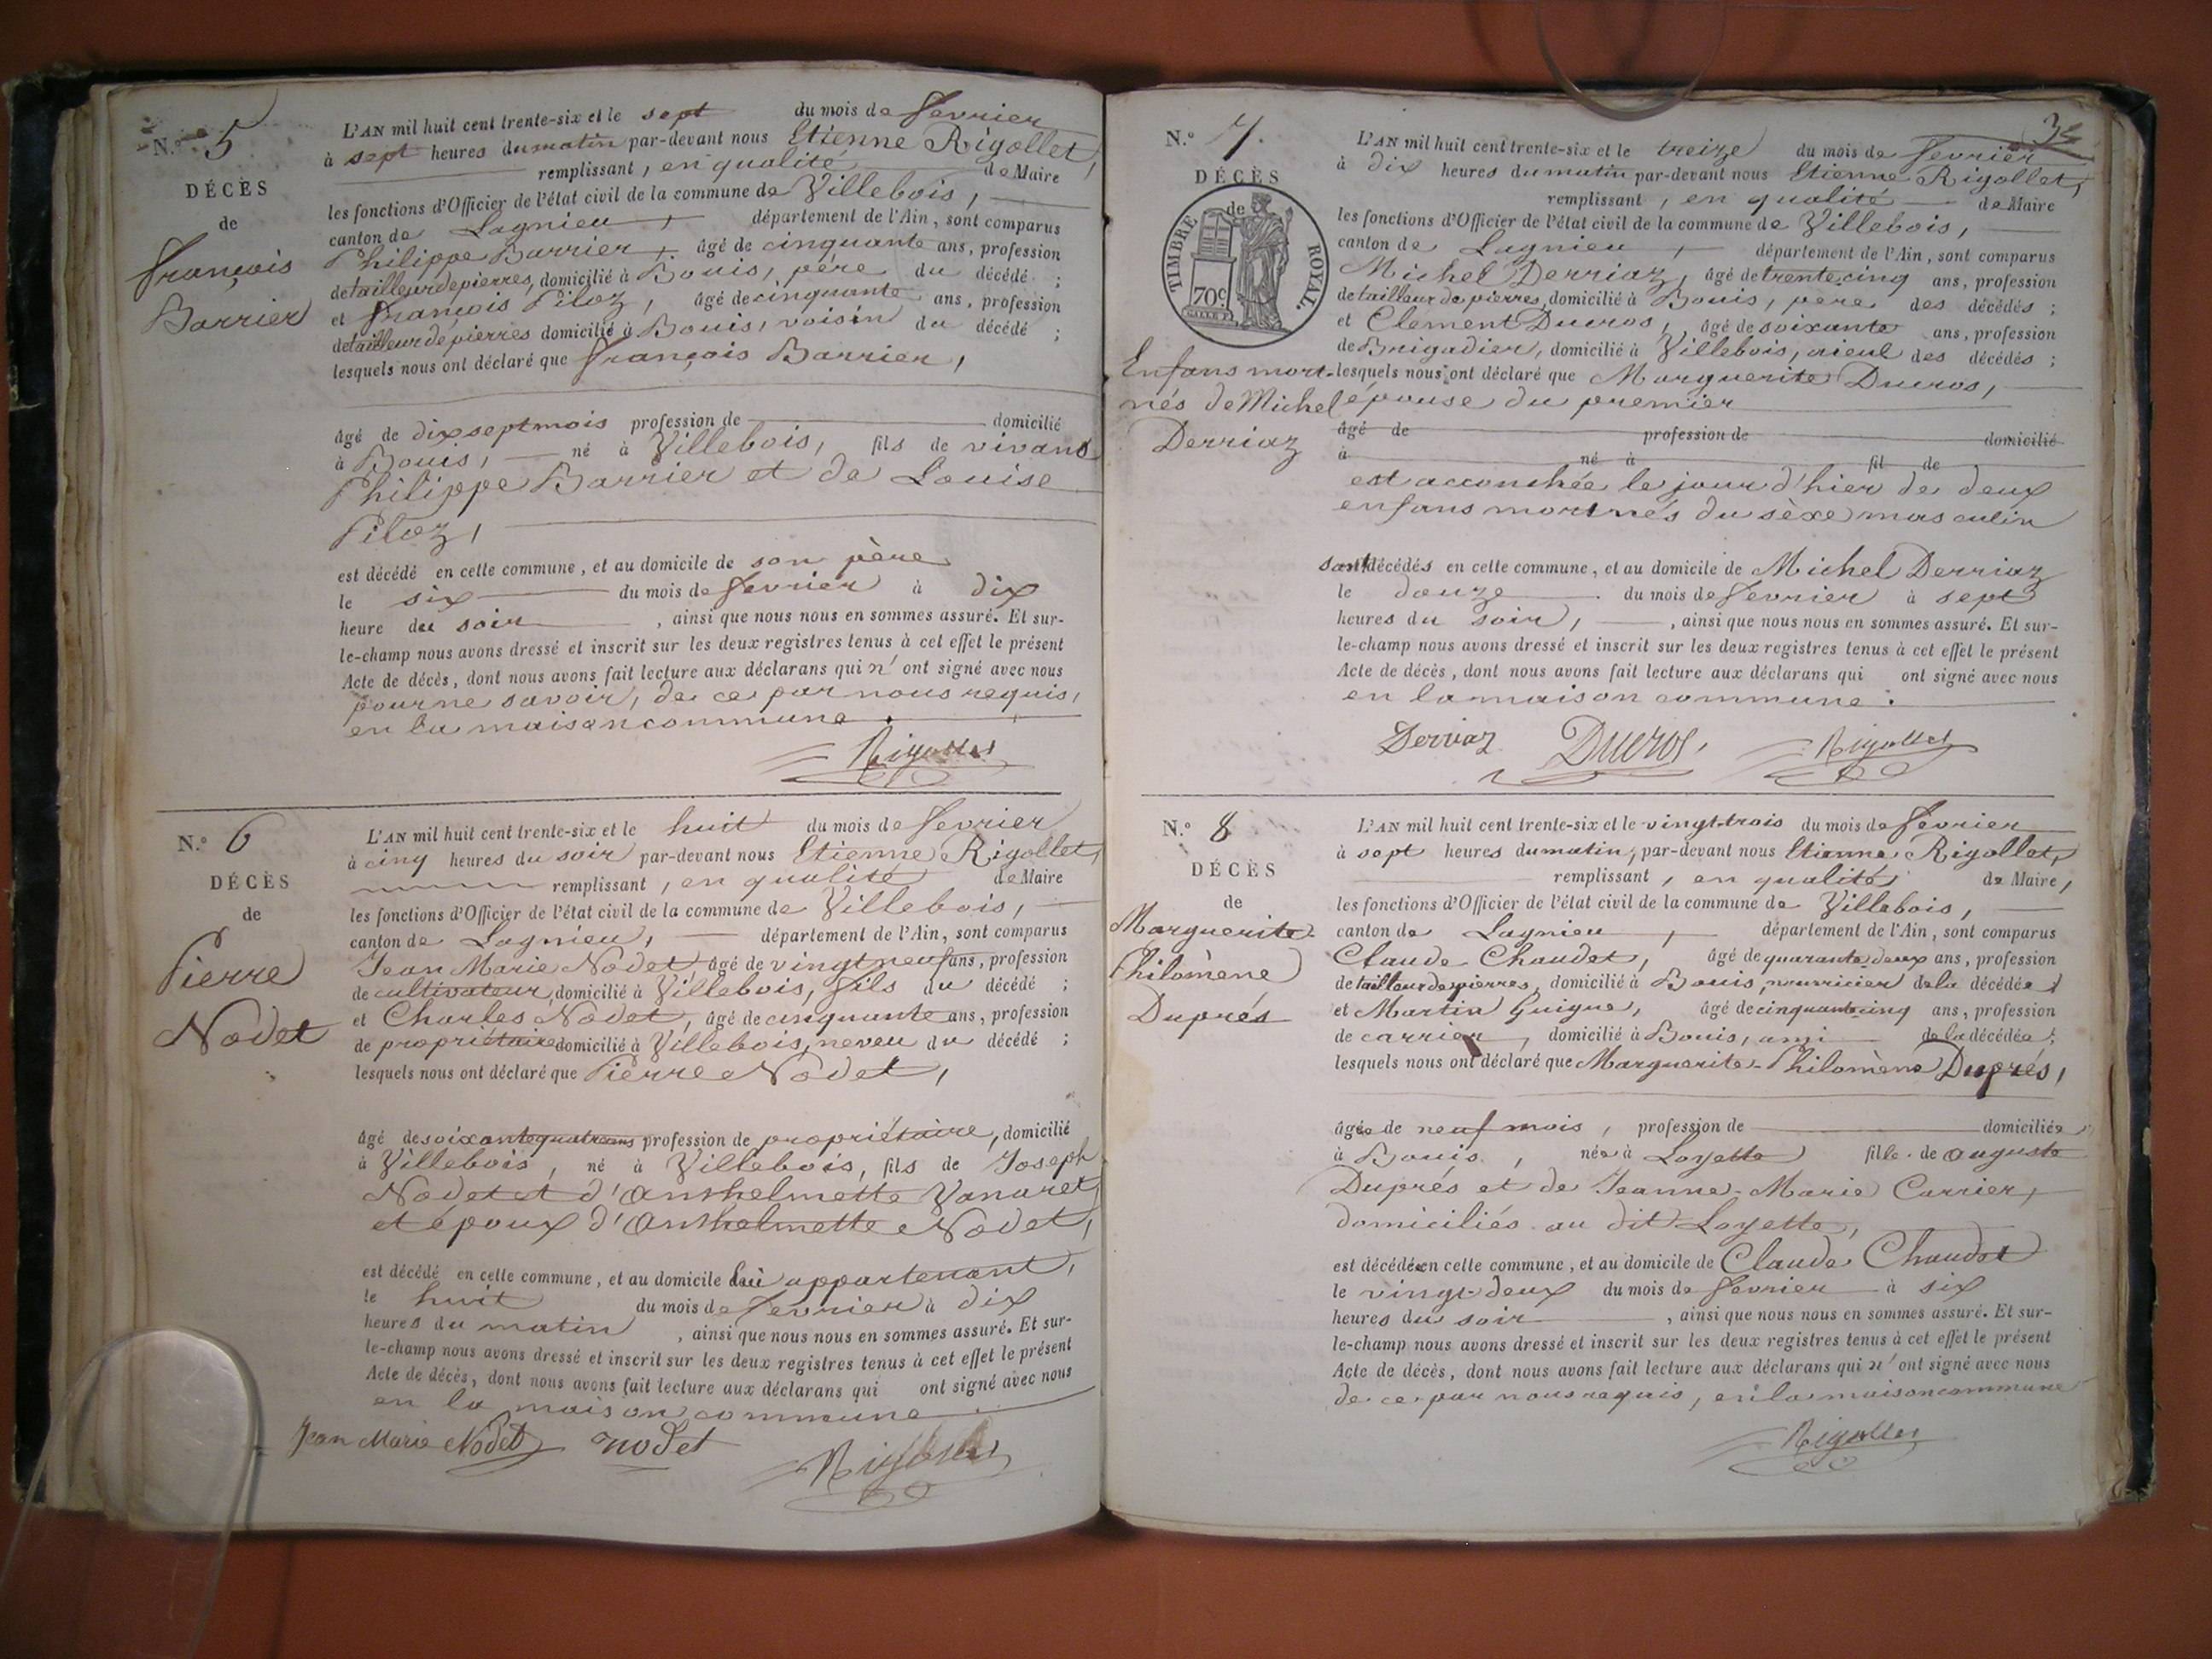 N.° 5
DÉCÈS
de
François
Barrier
L'AN mil huit cent trente-six et le sept du mois de fevrier
à sept heures du matin par-devant nous Etienne Rigollet,
remplissant, en qualité de Maire
les fonctions d'Officier de l'état civil de la commune de Villebois,
canton de Lagnieu, département de l'Ain, sont comparus
Philippe Barrier, âgé de cinquante ans, profession
de tailleur de pierres, domicilié à Bouis, père du décédé ;
et françois Piloz, âgé de cinquante ans, profession
de tailleur de pierres domicilié à Bouis, voisin du décédé ;
lesquels nous ont déclaré que françois Barrier,
âgé de dix sept mois profession de domicilié
à Bouis, né à Villebois, fils de vivans
Philippe Barrier et de Louise
Piloz,
est décédé en cette commune, et au domicile de son père
le six du mois de fevrier à dix
heure du soir, ainsi que nous nous en sommes assuré. Et sur-
le-champ nous avons dressé et inscrit sur les deux registres tenus à cet effet le présent
Acte de décès, dont nous avons fait lecture aux déclarans qui n' ont signé avec nous
pour ne savoir, de ce par nous requis,
en la maison commune.
Rigollet
N.° 6
DÉCÈS
de
Pierre
Nodet
L'AN mil huit cent trente-six et le huit du mois de fevrier
à cinq heures du soir par-devant nous Etienne Rigollet,
remplissant, en qualité de Maire
les fonctions d'Officier de l'état civil de la commune de Villebois,
canton de Lagnieu, département de l'Ain, sont comparus
Jean Marie Nodet âgé de vingt neuf ans, profession
de cultivateur, domicilié à Villebois, fils du décédé ;
et Charles Nodet, âgé de cinquante ans, profession
de propriétaire domicilié à Villebois, neveu du décédé ;
lesquels nous ont déclaré que Pierre Nodet,
âgé de soixante quatre ans profession de propriétaire, domicilié
à Villebois, né à Villebois, fils de Joseph
Nodet et d'Anthelmette Vanaret,
et époux d'Anthelmette Nodet,
est décédé en cette commune, et au domicile lui appartenant,
le huit du mois de fevrier à dix
heures du matin, ainsi que nous nous en sommes assuré. Et sur-
le-champ nous avons dressé et inscrit sur les deux registres tenus à cet effet le présent
Acte de décès, dont nous avons fait lecture aux déclarans qui ont signé avec nous
en la maison commune.
Jean Marie Nodet nodet Rigollet
N.° 7.
DÉCÈS
de
TIMBRE ROYAL.
70c
Enfans mort-
nés de Michel
Derriaz
L'AN mil huit cent trente-six et le treize du mois de fevrier
à dix heures du matin par-devant nous Etienne Rigollet,
remplissant, en qualité de Maire
les fonctions d'Officier de l'état civil de la commune de Villebois,
canton de Lagnieu, département de l'Ain, sont comparus
Michel Derriaz, âgé de trente cinq ans, profession
de tailleur de pierres, domicilié à Bouis, père des décédés ;
et Clement Ducros, âgé de soixante ans, profession
de Brigadier, domicilié à Villebois, aieul des décédés ;
lesquels nous ont déclaré que Marguerite Ducros,
épouse du premier
âgé de profession de domicilié
à né à fil de
est accouchée le jour d'hier de deux
enfans mort nés du sèxe masculin
sont décédés en cette commune, et au domicile de Michel Derriaz
le douze du mois de fevrier à sept
heures du soir, ainsi que nous nous en sommes assuré. Et sur-
le-champ nous avons dressé et inscrit sur les deux registres tenus à cet effet le présent
Acte de décès, dont nous avons fait lecture aux déclarans qui ont signé avec nous
en la maison commune.
Derriaz Ducros, Rigollet
N.° 8
DÉCÈS
de
Marguerite-
Philomène
Duprés
L'AN mil huit cent trente-six et le vingt-trois du mois de fevrier
à sept heures du matin, par-devant nous Etienne Rigollet,
remplissant, en qualité de Maire,
les fonctions d'Officier de l'état civil de la commune de Villebois,
canton de Lagnieu, département de l'Ain, sont comparus
Claude Chaudet, âgé de quarante deux ans, profession
de tailleur de pierres, domicilié à Bouis, nourricier de la décédée ;
et Martin Guigue, âgé de cinquante cinq ans, profession
de carrier, domicilié à Bouis, ami de la décédée ;
lesquels nous ont déclaré que Marguerite-Philomène Duprés,
âgée de neuf mois, profession de domiciliée
à Bouis, née à Loyette fille de Auguste
Duprés et de Jeanne-Marie Carrier,
domiciliés au dit Loyette,
est décédée en cette commune, et au domicile de Claude Chaudet
le vingt-deux du mois de fevrier à six
heures du soir, ainsi que nous nous en sommes assuré. Et sur-
le-champ nous avons dressé et inscrit sur les deux registres tenus à cet effet le présent
Acte de décès, dont nous avons fait lecture aux déclarans qui n' ont signé avec nous
de ce par nous requis, en la maison commune
Rigollet